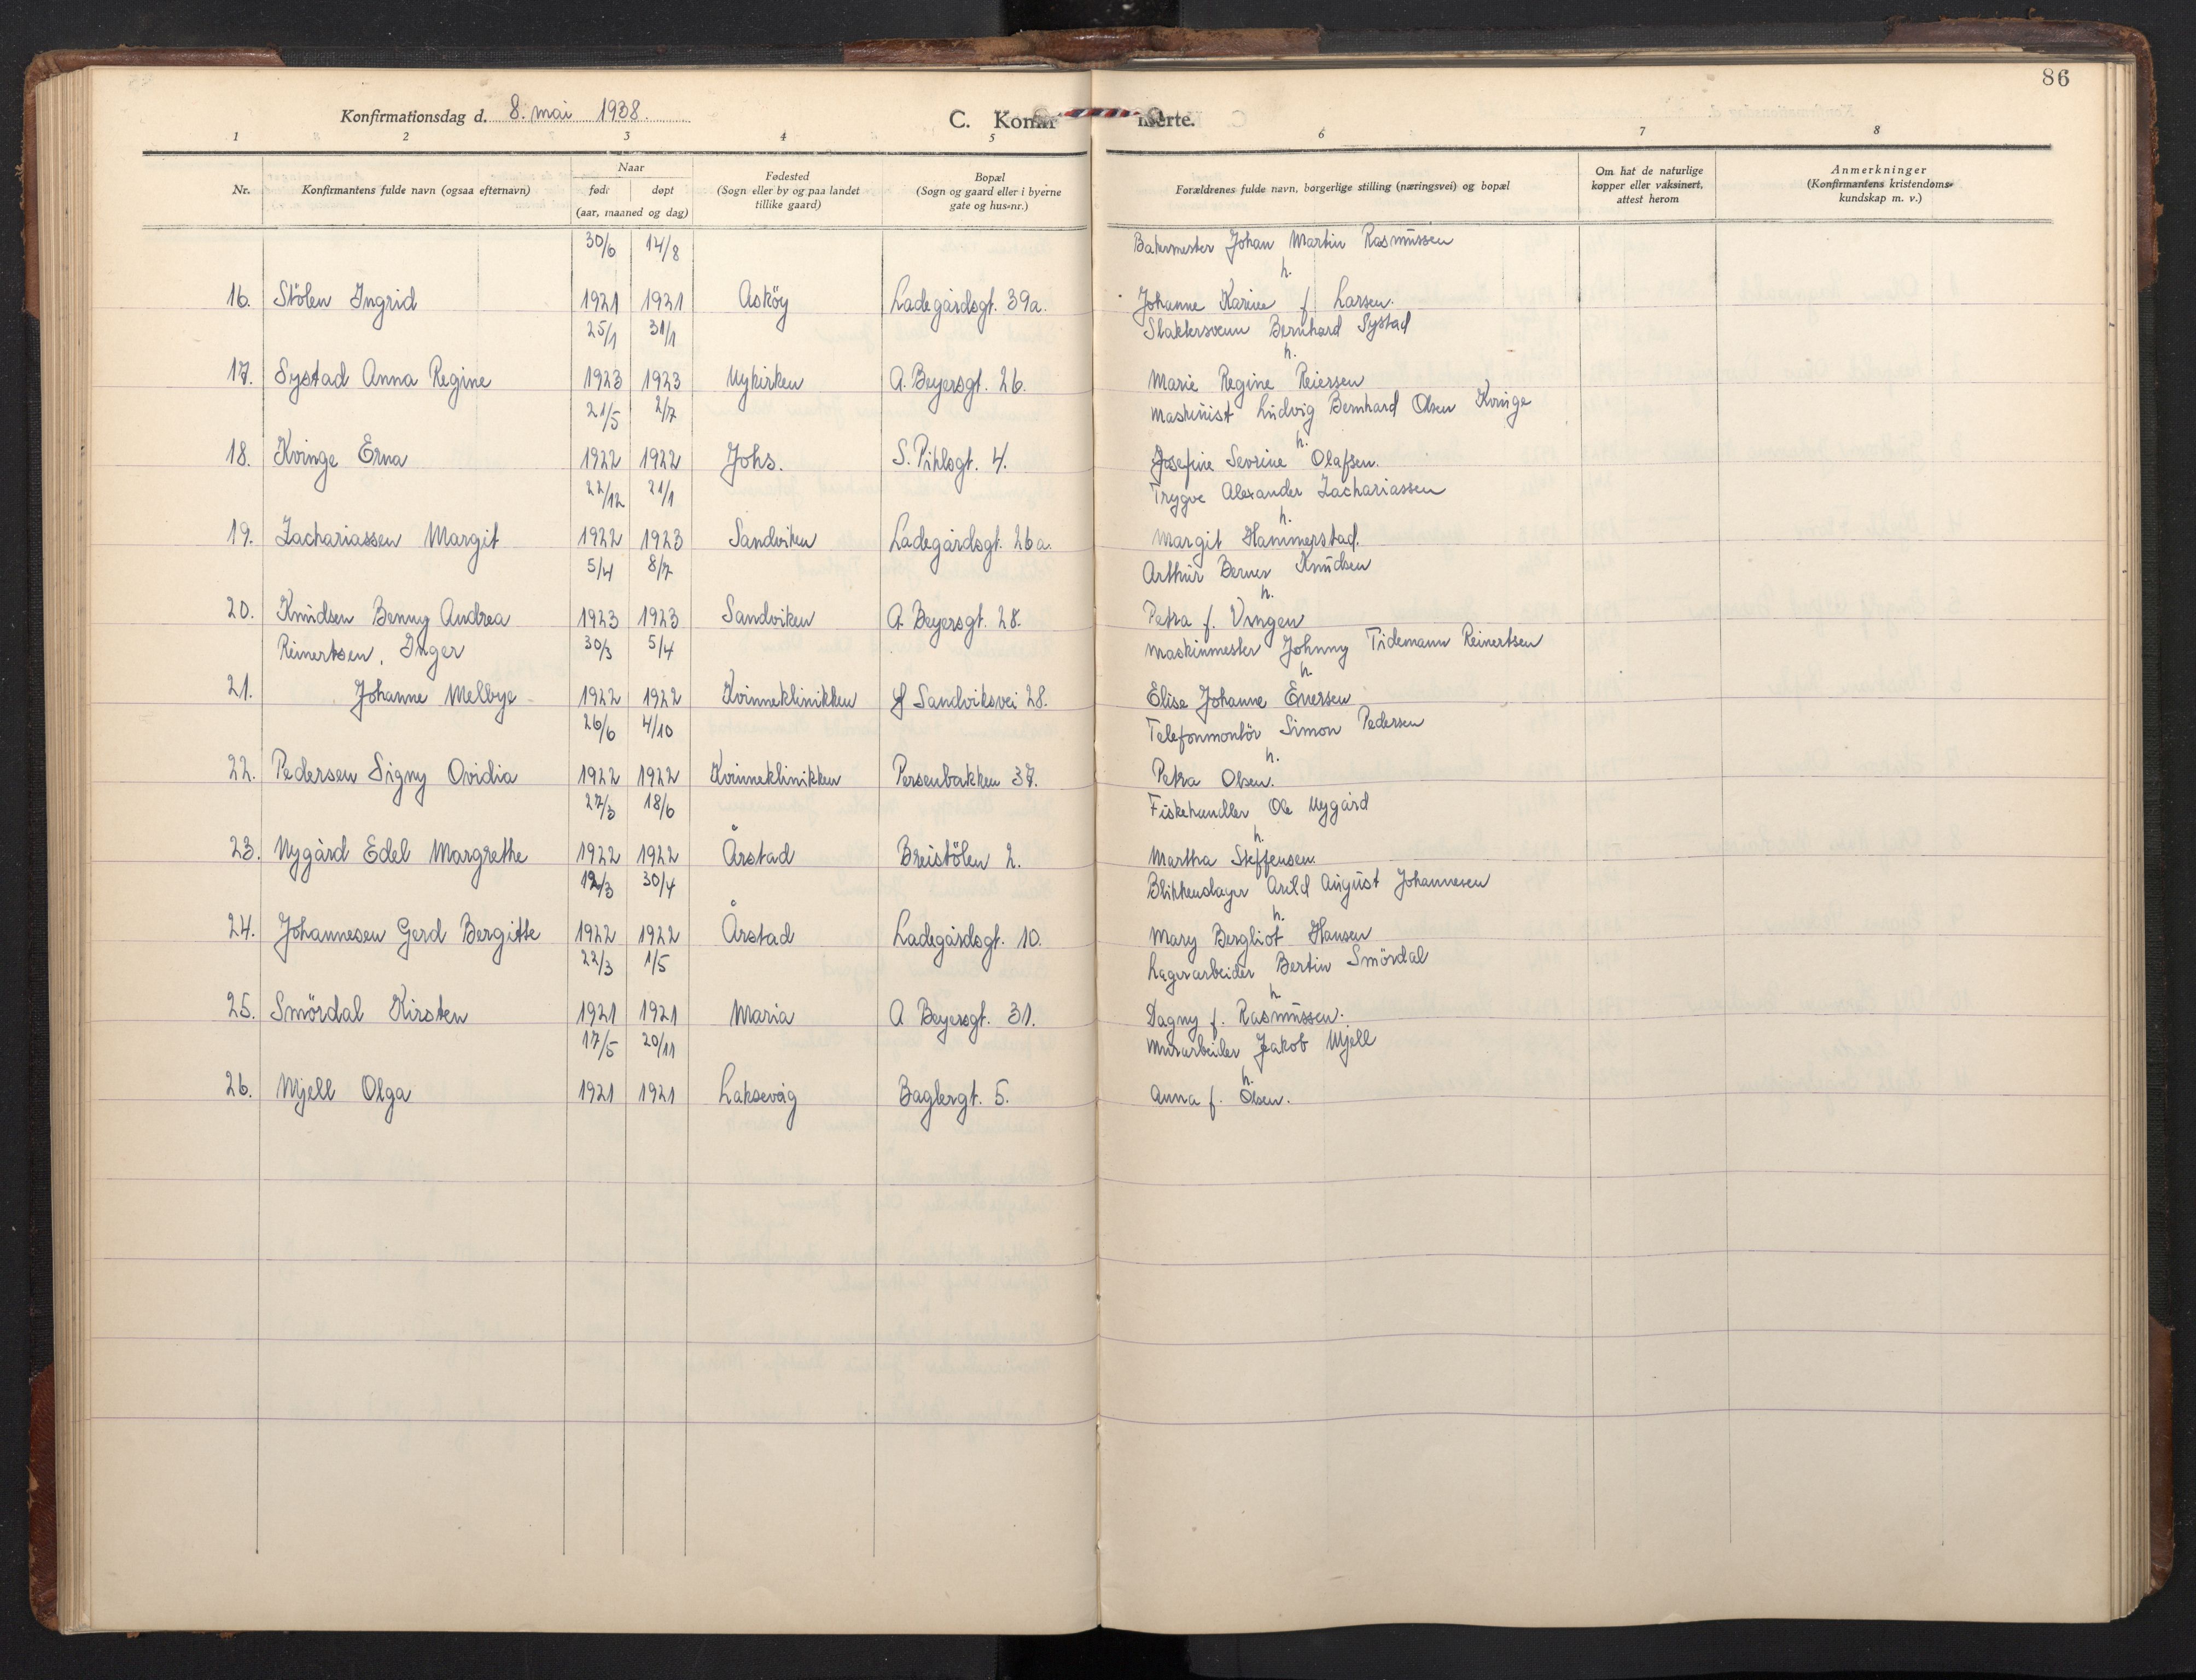 86
Konfirmationsdag d. 8. mai 1938.
C. Konfir merte.
1 2 3 4 5 6 7 8
Nr.
Konfirmantens fulde navn (ogsaa efternavn)
Naar
født døpt
(aar, maaned og dag)
Fødested
(Sogn eller by og paa landet
tillike gaard)
Bopæl
(Sogn og gaard eller i byerne
gate og hus-nr.)
Forældrenes fulde navn, borgerlige stilling (næringsvei) og bopæl
Om hat de naturlige
kopper eller vaksinert,
attest herom
Anmerkninger
(Konfirmantens kristendoms-
kundskap m. v.)
30/6 14/8 Bakermester Johan Martin Rasmussen
h.
16. Stölen Ingrid 1921 1921 Asköy Ladegårdsgt. 39a. Johanne Karine f. Larsen.
25/1 31/1 Slaktersvenn Bernhard Systad
h.
17. Systad Anna Regine 1923 1923 Nykirken A. Beyersgt. 26. Marie Regine Reiersen
21/5 2/7 Maskinist Ludvig Bernhard Olsen Kvinge
h.
18. Kvinge Erna 1922 1922 Johs. S. Pihlsgt. 4. Josefine Sevrine Olafsen.
22/12 21/1 Trygve Alexander Zachariassen
h.
19. Zachariassen Margit 1922 1923 Sandviken Ladegårdsgt. 26a. Margit Hammerstad.
5/4 8/7 Arthur Berner Knudsen
h.
20. Knudsen Benny Andrea 1923 1923 Sandviken A. Beyersgt. 28. Petra f. Vingen
Reinertsen, Inger 30/3 5/4 Maskinmester Johnny Tidemann Reinertsen
h.
21. Johanne Melbye 1922 1922 Kvinneklinikken Sandviksvei 28. Elise Johanne Eversen
26/6 4/10 Telefonmontör Simon Pedersen
h.
22. Pedersen Signy Ovidia 1922 1922 Kvinneklinikken Persenbakken 37. Petra Olsen.
27/3 18/6 Fiskehandler Ole Nygård
h.
23. Nygård Edel Margrethe 1922 1922 Årstad Breistölen 2. Martha Steffensen.
12/3 30/4 Blikkenslager Arild August Johannesen
h.
24. Johannesen Gerd Bergitte 1922 1922 Årstad Ladegårdsgt. 10. Mary Bergliot Hansen
22/3 1/5 Lagerarbeider Bertin Smördal
h
25. Smördal Kirsten 1921 1921 Maria A. Beyersgt. 31. Dagny f. Rasmussen.
17/5 20/11 Murarbeider Jakob Mjell
h.
26. Mjell Olga 1921 1921 Laksevåg Baglergt. 5. Anna f. Olsen.